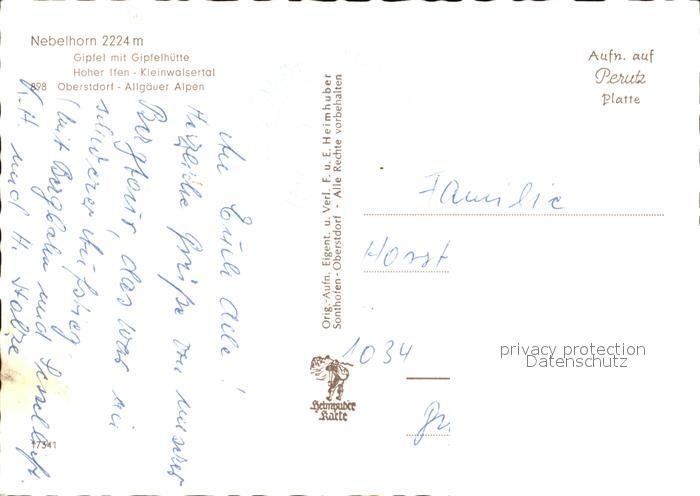 Nebelhorn 2224 m
Gipfel mit Gipfelhütte
Hoher Ifen - Kleinwalsertal
898 Oberstdorf - Allgäuer Alpen
An Euch alle!
Herzliche Grüße von unserer
Bergtour, das war ein
schwerer Aufstieg
(mit Bergbahn und Sessellift.
K.H. und H.
17341
Orig.-Aufn. Eigent. u. Verl. F. u. E. Heimhuber
Sonthofen-Oberstdorf - Alle Rechte vorbehalten
Heimhuber
Karte
Aufn. auf
Perutz
Platte
Familie
Horst
1034
privacy protection
Datenschutz